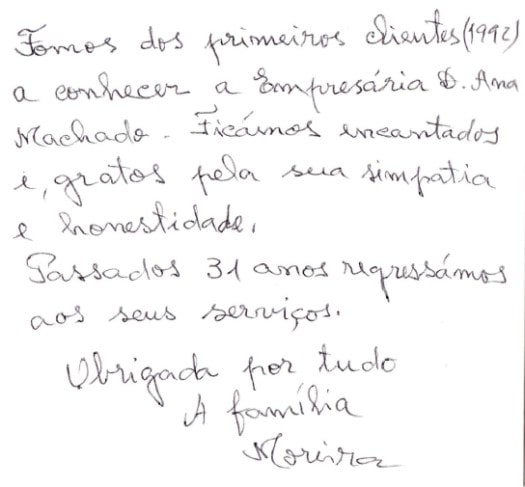 Fomos dos primeiros clientes (1992)
a conhecer a Empresária D. Ana
Machado. Ficámos encantados
e, gratos pela sua simpatia
e honestidade.
Passados 31 anos regressámos
aos seus serviços.
Obrigada por tudo
A família
Moreira